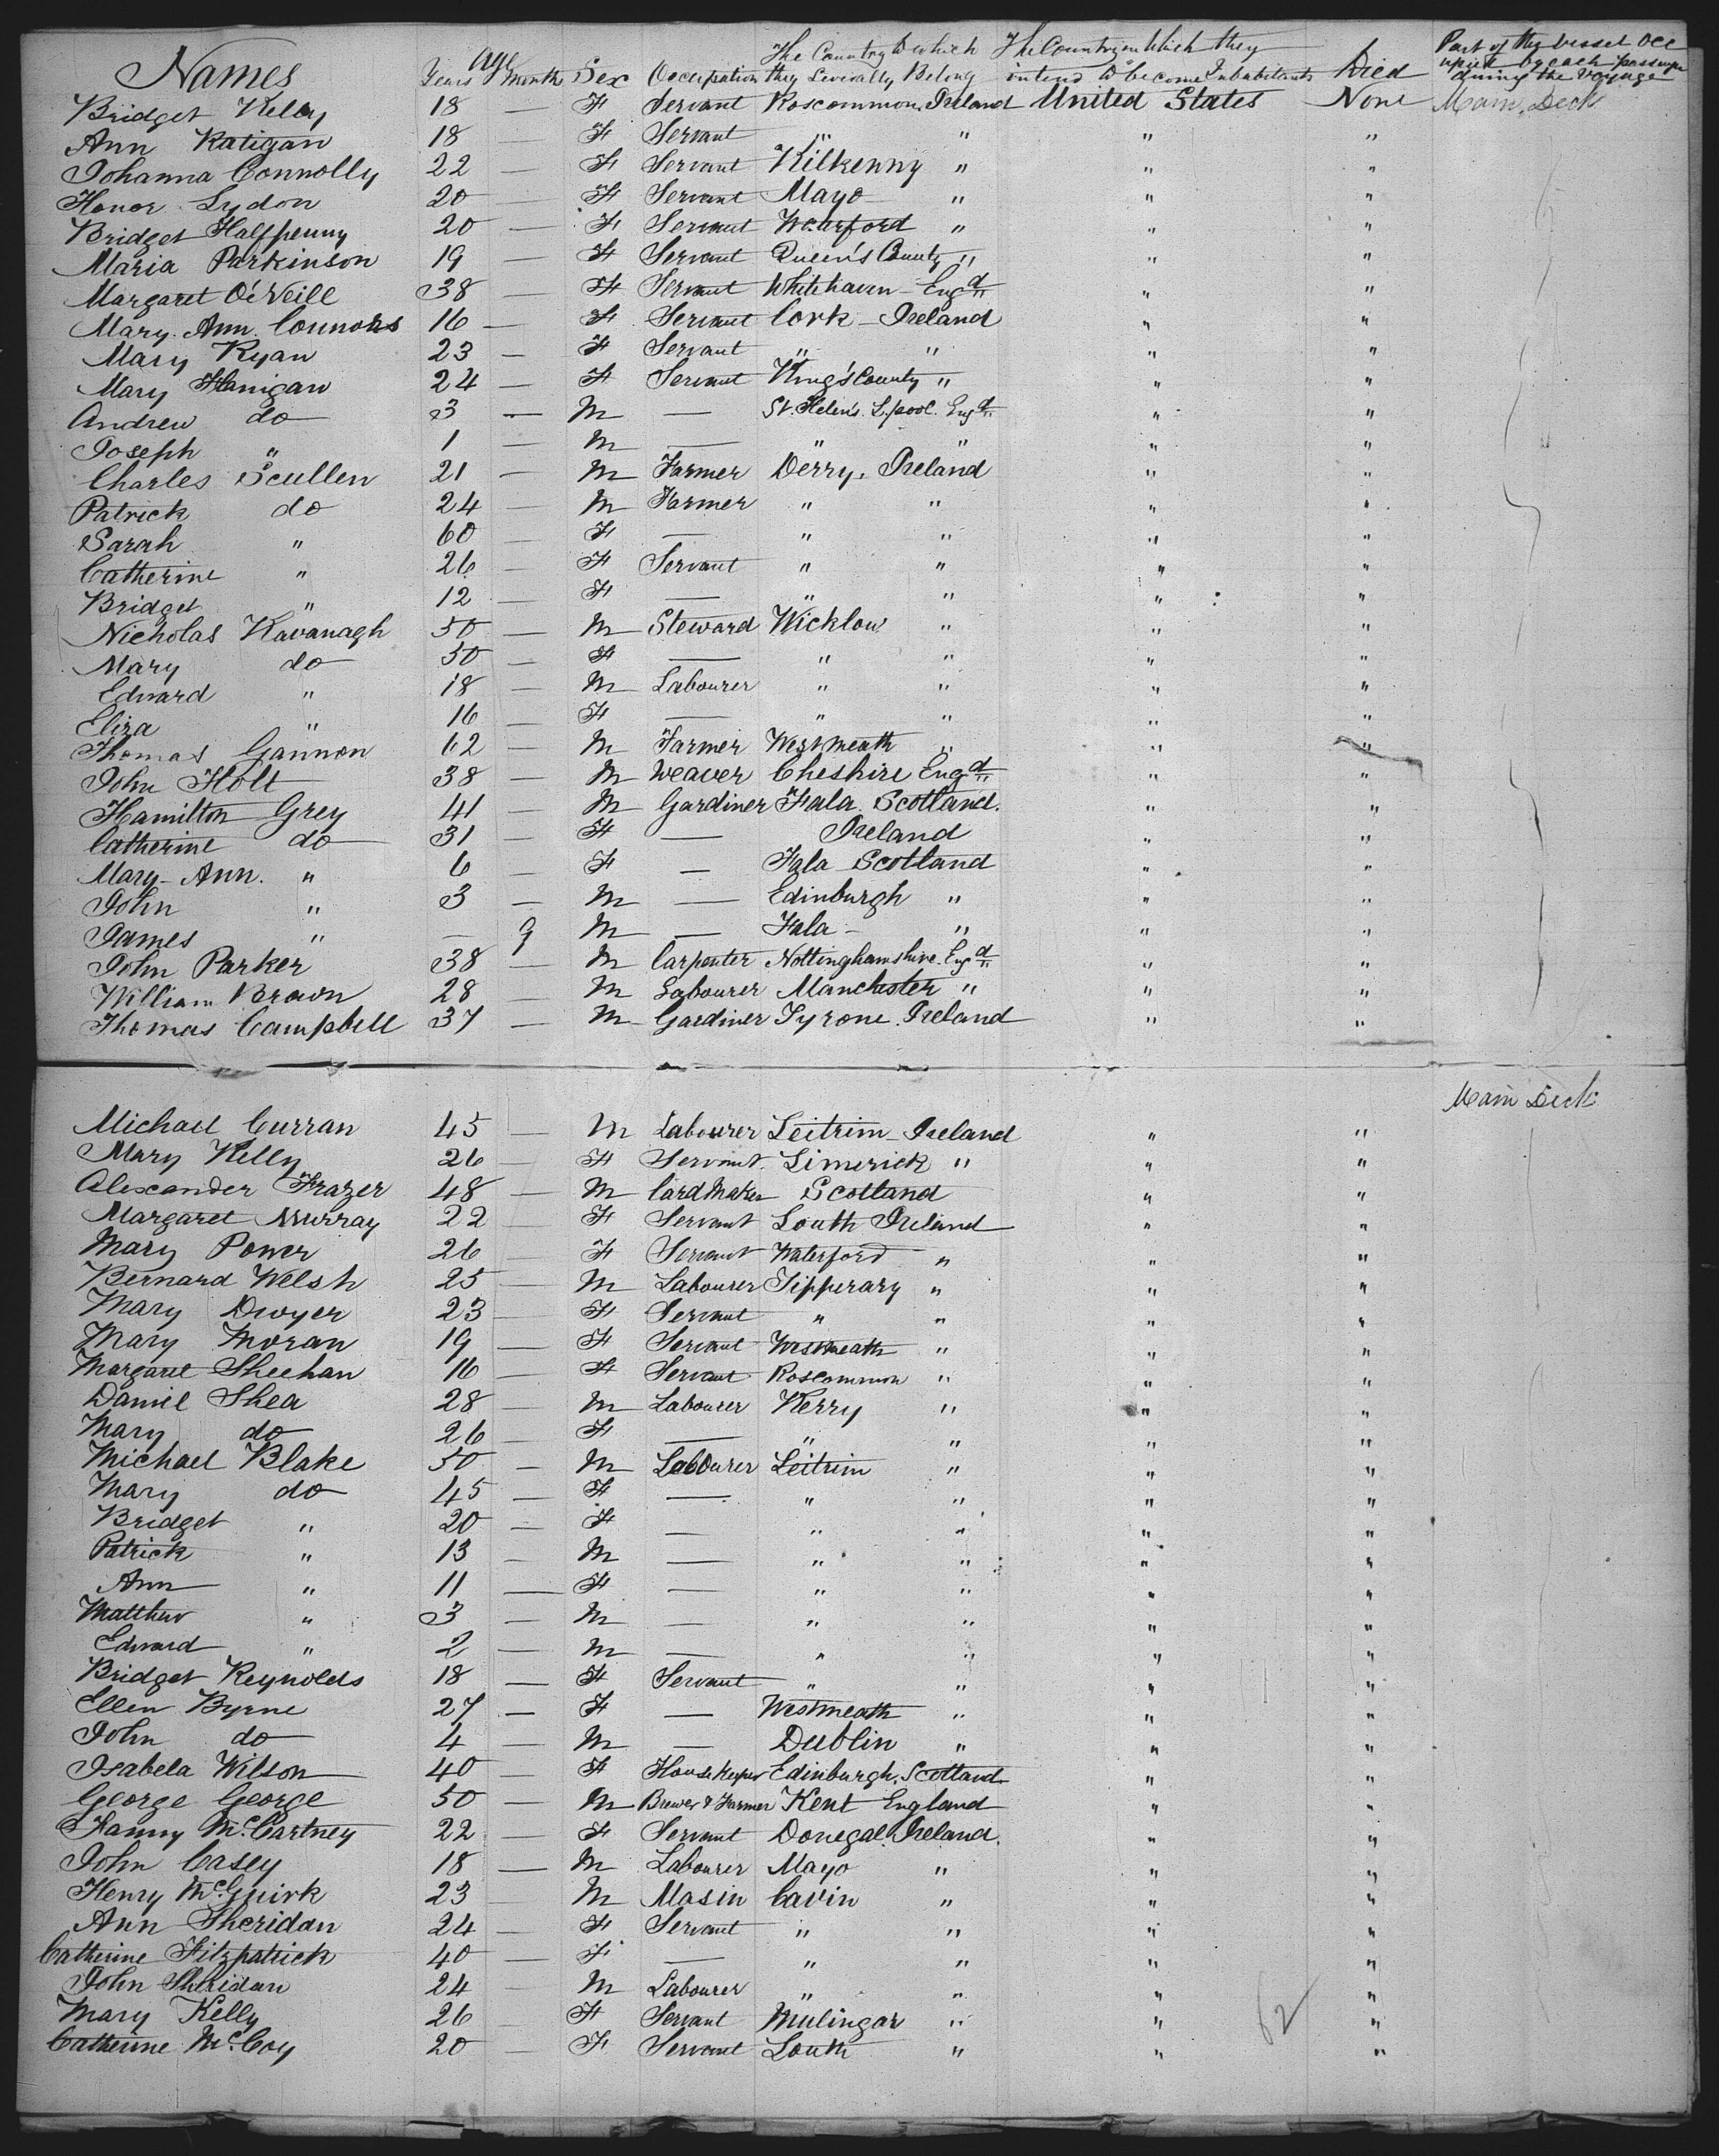 Names Age Years Month Sex Occupation The Country to which they Severally Belong The Country in Which they intend to become Inhabitants Died Part of the vessel occupied by each passenger during the voyage
Bridget Kelly 18 — F Servant Roscommon, Ireland United States None Main Deck
Ann Ratigan 18 — F Servant " " " "
Johanna Connolly 22 — F Servant Kilkenny " " "
Honor Lydon 20 — F Servant Mayo " " "
Bridget Halfpenny 20 — F Servant " " "
Maria Parkinson 19 — F Servant Queen's County " " "
Margaret O'Neill 38 — F Servant Whitehaven - Engd " " "
Mary Ann Connors 16 — F Servant Cork - Ireland " "
Mary Ryan 23 — F Servant " " " "
Mary Flanigan 24 — F Servant King's County " " "
Andrew do 3 — M — St. Helens. L.pool. Engd " " "
Joseph " 1 — M — " " " "
Charles Scullen 21 — M Farmer Derry, Ireland " "
Patrick do 24 — M Farmer " " " "
Sarah " 60 — F — " " " "
Catherine " 26 — F Servant " " " "
Bridget " 12 — F — " " " "
Nicholas Kavanagh 50 — M Steward Wicklow " " "
Mary do 50 — F — " " " "
Edward " 18 — M Labourer " " " "
Eliza " 16 — F — " " " "
Thomas Gannon 62 — M Farmer Westmeath " " "
John Holt 38 — M Weaver Cheshire Engd " " "
Hamilton Grey 41 — M Gardiner Fala. Scotland. " "
Catherine do 31 — F — Ireland " "
Mary Ann. " 6 — F — Fala Scotland " "
John " 3 — M — Edinburgh " " "
James " — 9 M — Fala - " " "
John Parker 38 — M Carpenter Nottinghamshire. Engd " " "
William Brown 28 — M Labourer Manchester " " "
Thomas Campbell 37 — M Gardiner Tyrone. Ireland " "
Main Deck
Michael Curran 45 — M Labourer Leitrim - Ireland " "
Mary Kelly 26 — F Servant. Limerick " " "
Alexander Frazer 48 — M Card Maker Scotland " "
Margaret Murray 22 — F Servant Louth Ireland " "
Mary Power 26 — F Servant Waterford " " "
Bernard Welsh 25 — M Labourer Tipperary " " "
Mary Dwyer 23 — F Servant " " " "
Mary Moran 19 — F Servant Westmeath " " "
Margaret Sheehan 16 — F Servant Roscommon " " "
Daniel Shea 28 — M Labourer Kerry " " "
Mary do 26 — F — " " " "
Michael Blake 50 — M Labourer Leitrim " " "
Mary do 45 — F — " " " "
Bridget " 20 — F — " " " "
Patrick " 13 — M — " " " "
Ann " 11 — F — " " " "
Matthew " 3 — M — " " " "
Edward " 2 — M — " " " "
Bridget Reynolds 18 — F Servant " " " "
Ellen Byrne 27 — F — Westmeath " " "
John do 4 — M — Dublin " " "
Isabela Wilson 40 — F House Keeper Edinburgh. Scotland " "
George George 50 — M Brewer & Farmer Kent England " "
Fanny McCartney 22 — F Servant Donegal. Ireland. " "
John Casey 18 — M Labourer Mayo " " "
Henry McGuirk 23 — M Masin Cavin " " "
Ann Sheridan 24 — F Servant " " " "
Catherine Fitzpatrick 40 — F — " " " "
John Sheridan 24 — M Labourer " " " "
Mary Kelly 26 — F Servant Mulingar " " 62 "
Catherine McCoy 20 — F Servant Louth " " "